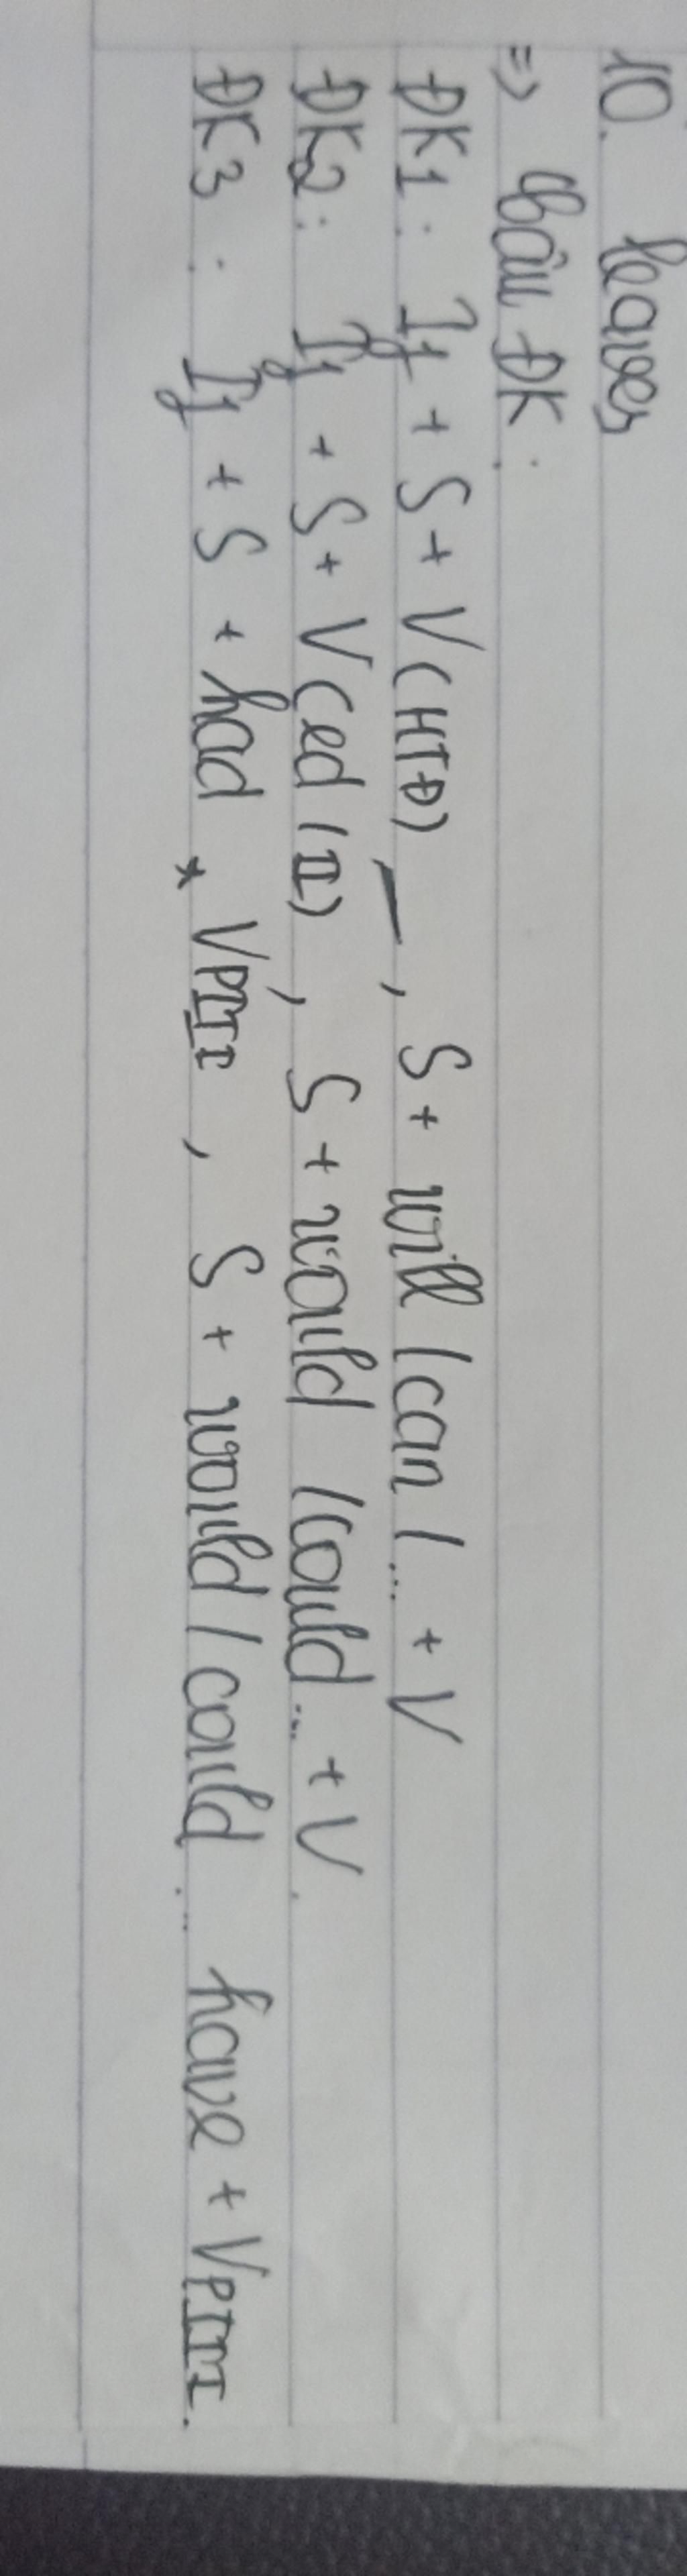 10. leaves
=> Câu ĐK :
ĐK1 : If + S + V (HTĐ) , S + will / can / ... + V
ĐK2 : If + S + V (ed / II) , S + would / could ... + V.
ĐK3 : If + S + had + VPIII , S + would / could ... have + VPIII.